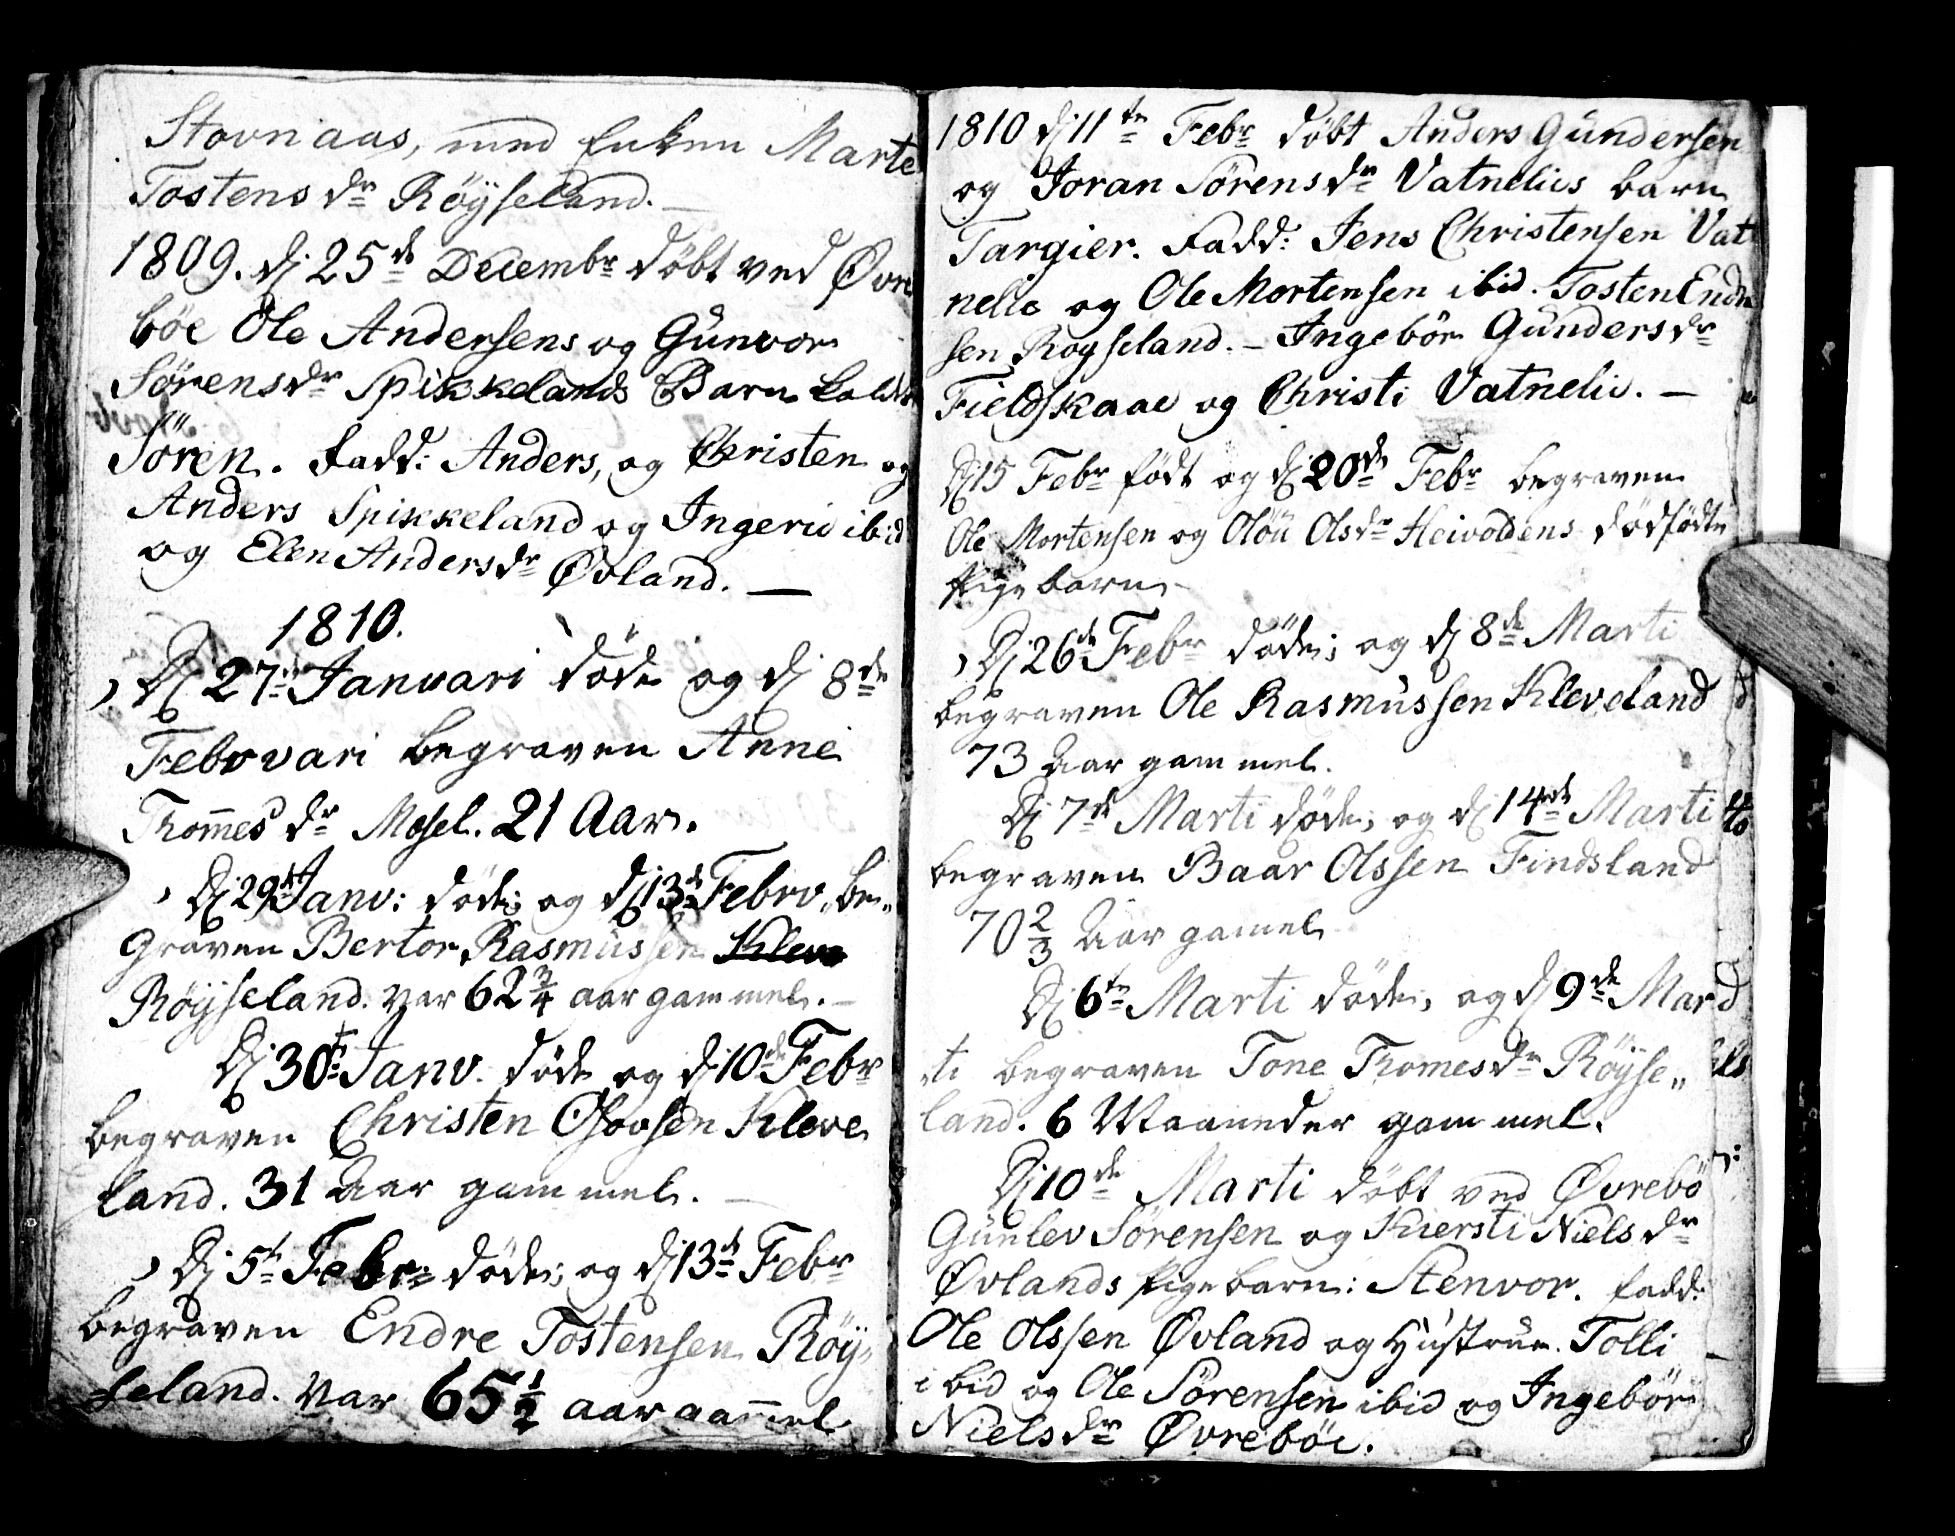 Stovnaas, med Enken Marte
Tostens dr Röÿseland. —
1809. dj 25de Decembr döbt ved Øvre
böe Ole Andersens og Gunvor
Sørensdr Spikkelands Barn kaldet
Sören. Fadd: Anders, og Christen og
Anders Spikkeland og Ingerid ibid
og Elen Andersdr Øvland. —
1810.
Dj 27de Januari døde og dj 8de
Februari begraven Anne
Thom̄es dr Mosel. 21 Aar.
Dj 29de Janv: døde; og dj 13de Febrv„ be„
graven Bertor Rasmussen Kleve
Röÿseland. var 62 3/4 aar gammel. —
Dj 30te Janv. døde og dj 10de Febr
begraven Christen Olsen Kleve
land. 31 Aar gammel. —
Dj 5te Febr: døde; og dj 13de Febr
begraven Endre Tostensen Röÿ„
seland. var 65 1/2 aar gam̄el
1810 dj 11te Febr döbt Anders Gundersen
og Joran Sörensdr Vatnelies barn
Targier. Fadd: Jens Christensen Vat
nelie og Ole Mortensen ibid. Tosten Endre
sen Royseland. – Ingebör Gundersdr
Fieldskaae og Christi Vatnelie. —
Dj 15 Febr födt og dj 20de Febr begraven
Ole Mortensen og Olöü Olsdr Heivoldens dødfödte
Pige barn –
Dj 26de Febr døde; og dj 8de Marti
begraven Ole Rasmussen Kleveland
73 Aar gammel.
Dj 7de Marti døde; og dj 14de Marti
begraven Baar Olssen Findsland
70 2/3 Aar gamel
Dj 6te Marti døde; og dj 9de Mar
„ti begraven Tone Thomesdr Röÿse„
land. 6 Maaneder gammel.
Dj 10de Marti döbt ved Øvrebö
Gunlev Sörensen og Kiersti Nielsdr
Øvlands Pigebarn: Stenvor. Fadd:
Ole Olssen Øvland og Hustrue. Tolli
ibid og Ole Sörensen ibid og Ingebör
Nielsdr Øvreböe.